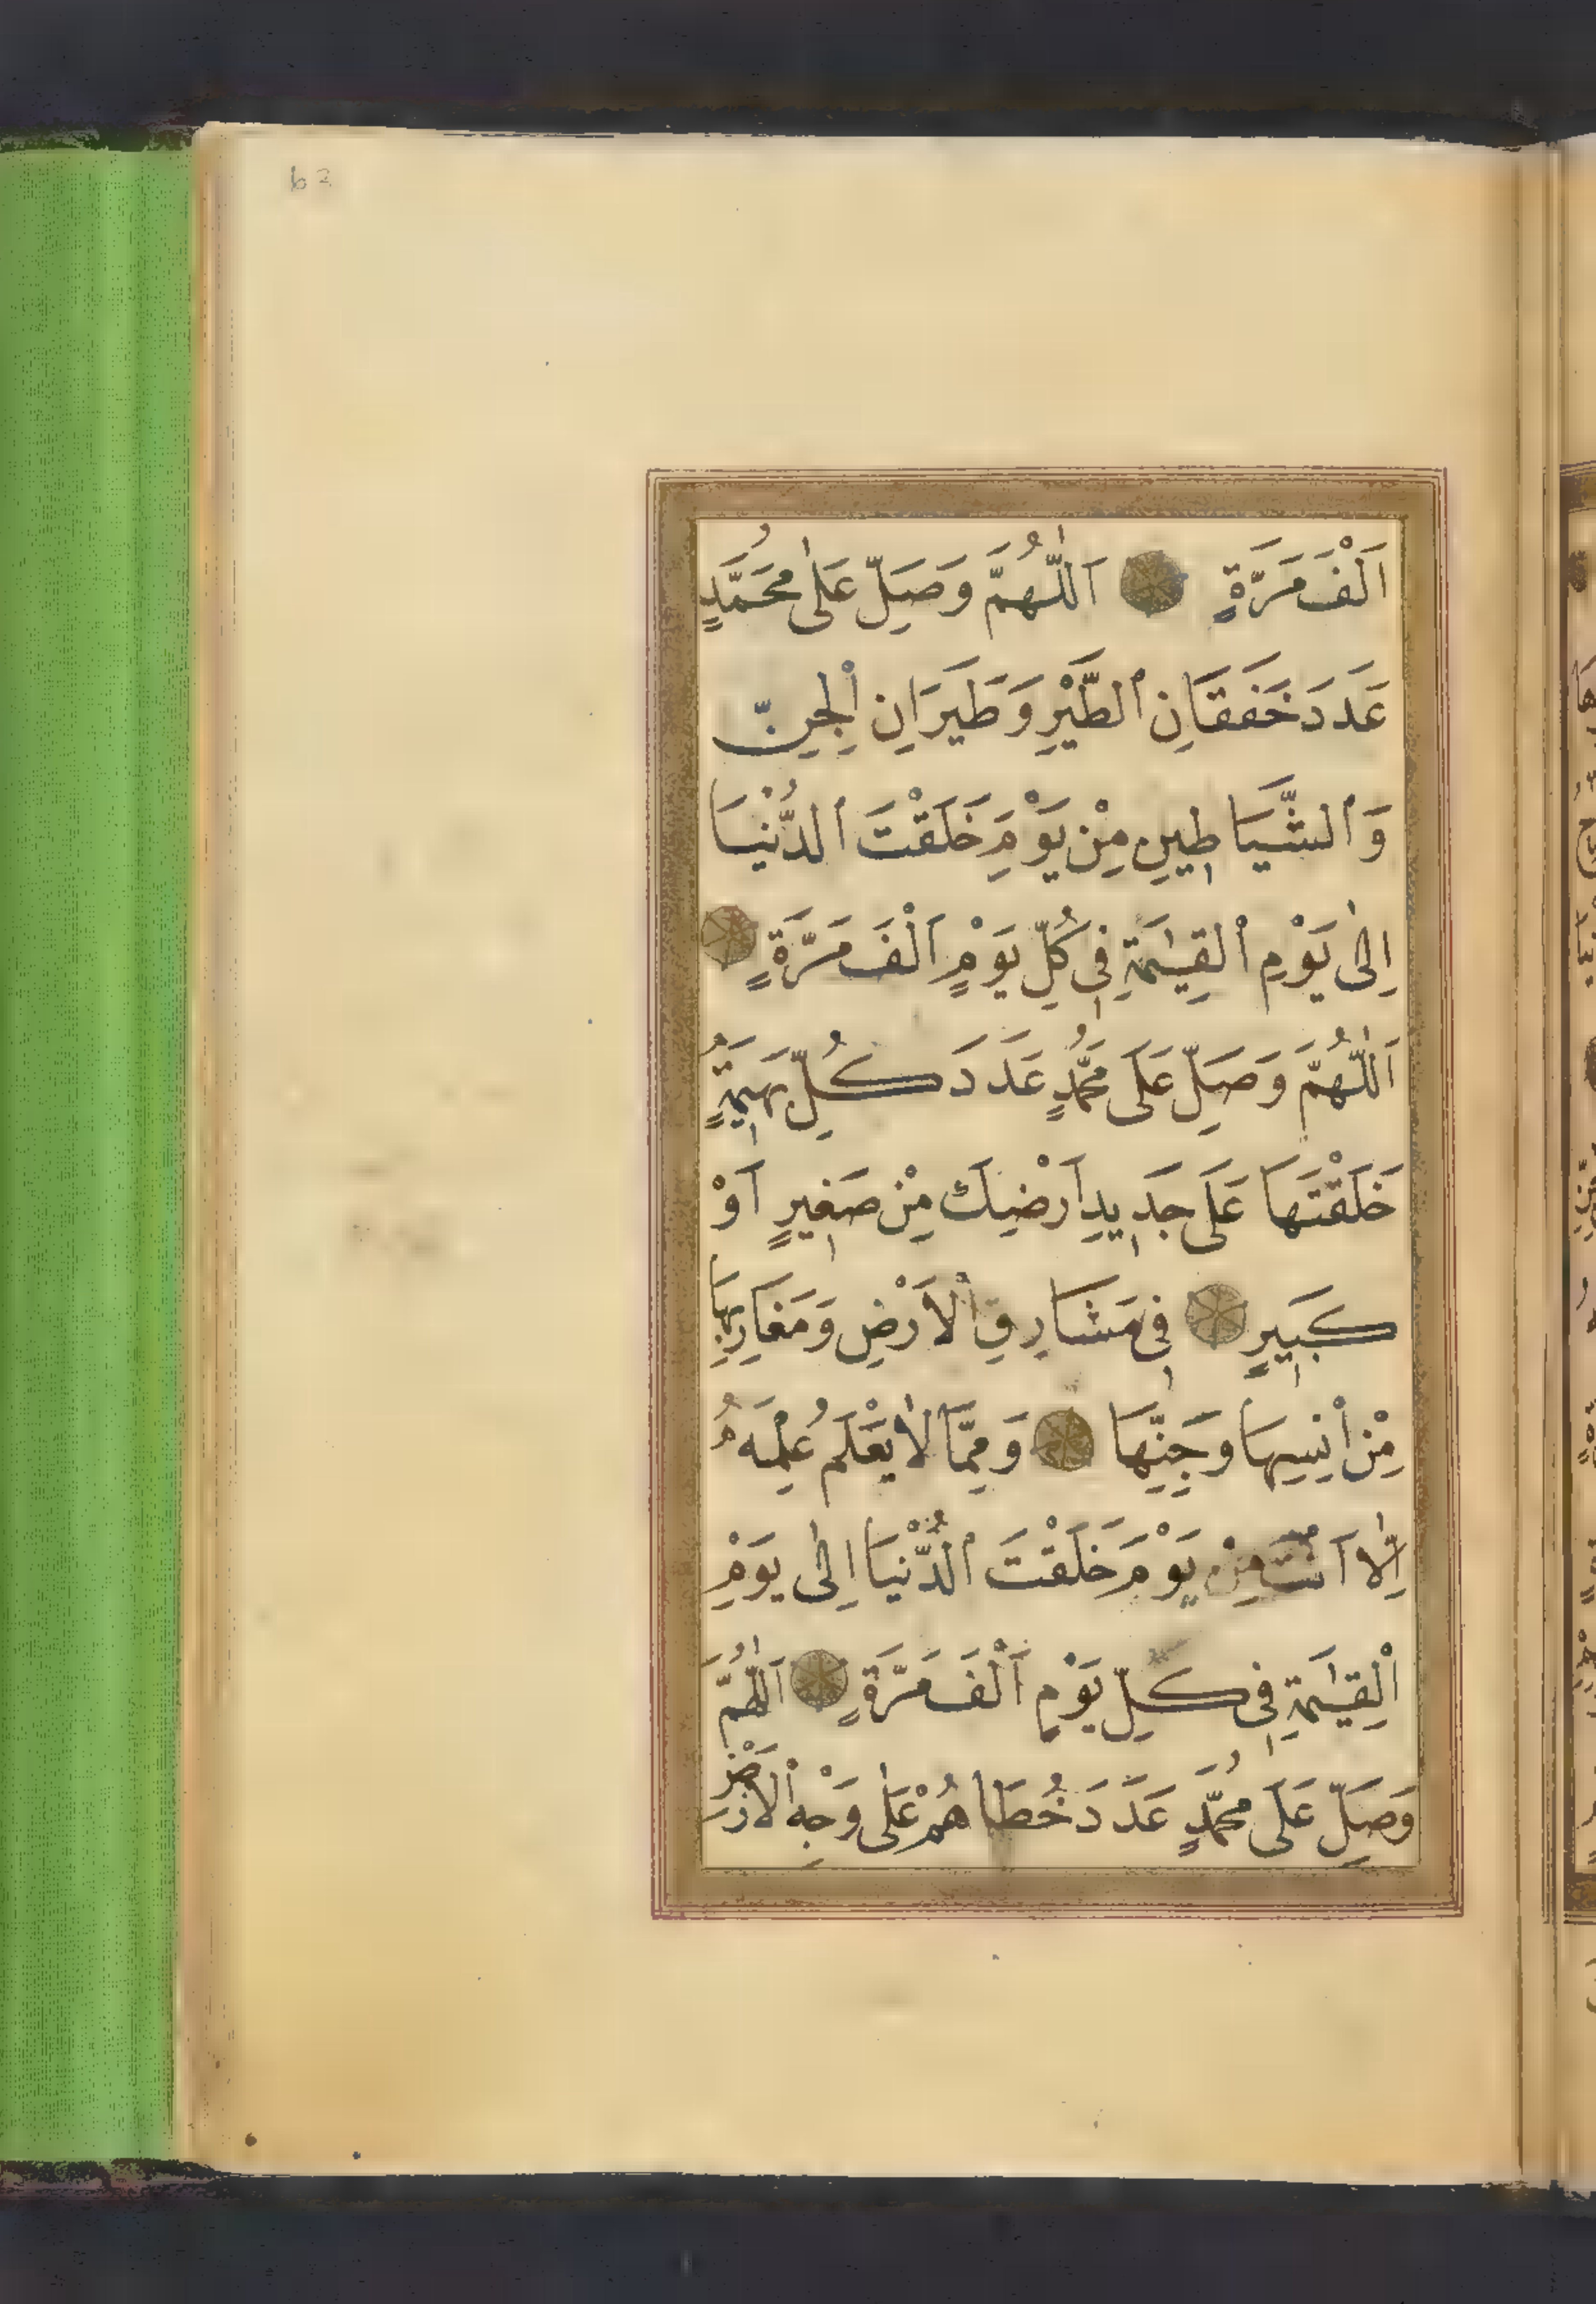 62
اَلْفَ مَرَّةٍ اَللّٰهُمَّ وَصَلِّ عَلٰى مُحَمَّدٍ
عَدَدَ خَفَقَانِ الطَّيْرِ وَطَيَرَانِ الْجِنِّ
وَالشَّيَاطِينِ مِنْ يَوْمِ خَلَقْتَ الدُّنْيَا
اِلٰى يَوْمِ الْقِيٰمَةِ فِى كُلِّ يَوْمٍ اَلْفَ مَرَّةٍ
اَللّٰهُمَّ وَصَلِّ عَلَى مُحَمَّدٍ عَدَدَ كُلِّ بَهِيمَةٍ
خَلَقْتَهَا عَلَى جَدِيدِ اَرْضِكَ مِنْ صَغِيرٍ اَوْ
كَبِيرٍ فِى مَشَارِقِ الْاَرْضِ وَمَغَارِبِهَا
مِنْ اِنْسِهَا وَجِنِّهَا وَمِمَّا لَا يَعْلَمُ عِلْمَهُ
اِلَّا اَنْتَ مِنْ يَوْمِ خَلَقْتَ الدُّنْيَا اِلٰى يَوْمِ
الْقِيٰمَةِ فِى كُلِّ يَوْمٍ اَلْفَ مَرَّةٍ اَللّٰهُمَّ
وَصَلِّ عَلَى مُحَمَّدٍ عَدَدَ خُطَاهُمْ عَلٰى وَجْهِ الْاَرْضِ